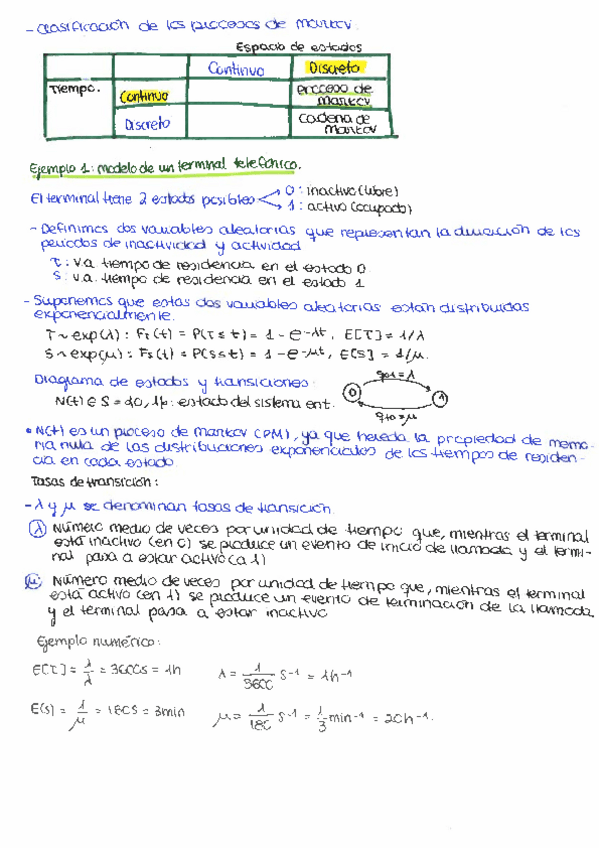 - Clasificación de los procesos de Markov.
Espacio de estados
Continuo Discreto
Tiempo. Continuo Proceso de Markov
Discreto Cadena de Markov
Ejemplo 1: modelo de un terminal telefónico.
El terminal tiene 2 estados posibles
0: inactivo (libre)
1: activo (ocupado)
- Definimos dos variables aleatorias que representan la duración de los
periodos de inactividad y actividad
τ: v.a tiempo de residencia en el estado 0.
S: v.a. tiempo de residencia en el estado 1
- Suponemos que estas dos variables aleatorias están distribuidas
exponencialmente.
τ ~ exp(λ): Fτ(t) = P(τ ≤ t) = 1 - e^-λt, E[τ] = 1/λ
S ~ exp(μ): Fs(t) = P(S ≤ t) = 1 - e^-μt, E[S] = 1/μ.
Diagrama de estados y transiciones:
N(t) ∈ S = {0,1}: estado del sistema en t.
q01 = λ
0 1
q10 = μ
• N(t) es un proceso de Markov (PM), ya que hereda la propiedad de memo-
ria nula de las distribuciones exponenciales de los tiempos de residen-
cia en cada estado.
Tasas de transición:
- λ y μ se denominan tasas de transición
λ Número medio de veces por unidad de tiempo que, mientras el terminal
está inactivo (en 0) se produce un evento de inicio de llamada y el termi-
nal pasa a estar activo (a 1)
μ Número medio de veces por unidad de tiempo que, mientras el terminal
está activo (en 1) se produce un evento de terminación de la llamada
y el terminal pasa a estar inactivo
Ejemplo numérico:
E[τ] = 1/λ = 3600s = 1h λ = 1/3600 s^-1 = 1h^-1
E(s) = 1/μ = 180s = 3min μ = 1/180 s^-1 = 1/3 min^-1 = 20h^-1.